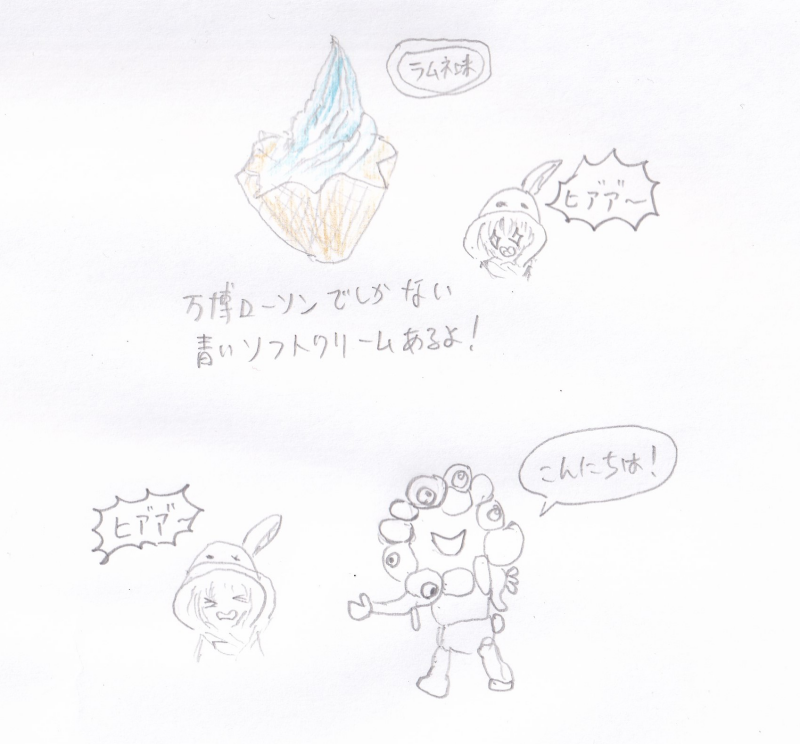 ラムネ味
ヒアア〜
万博ローソンでしかない
青いソフトクリームあるよ!
こんにちは!
ヒアア〜